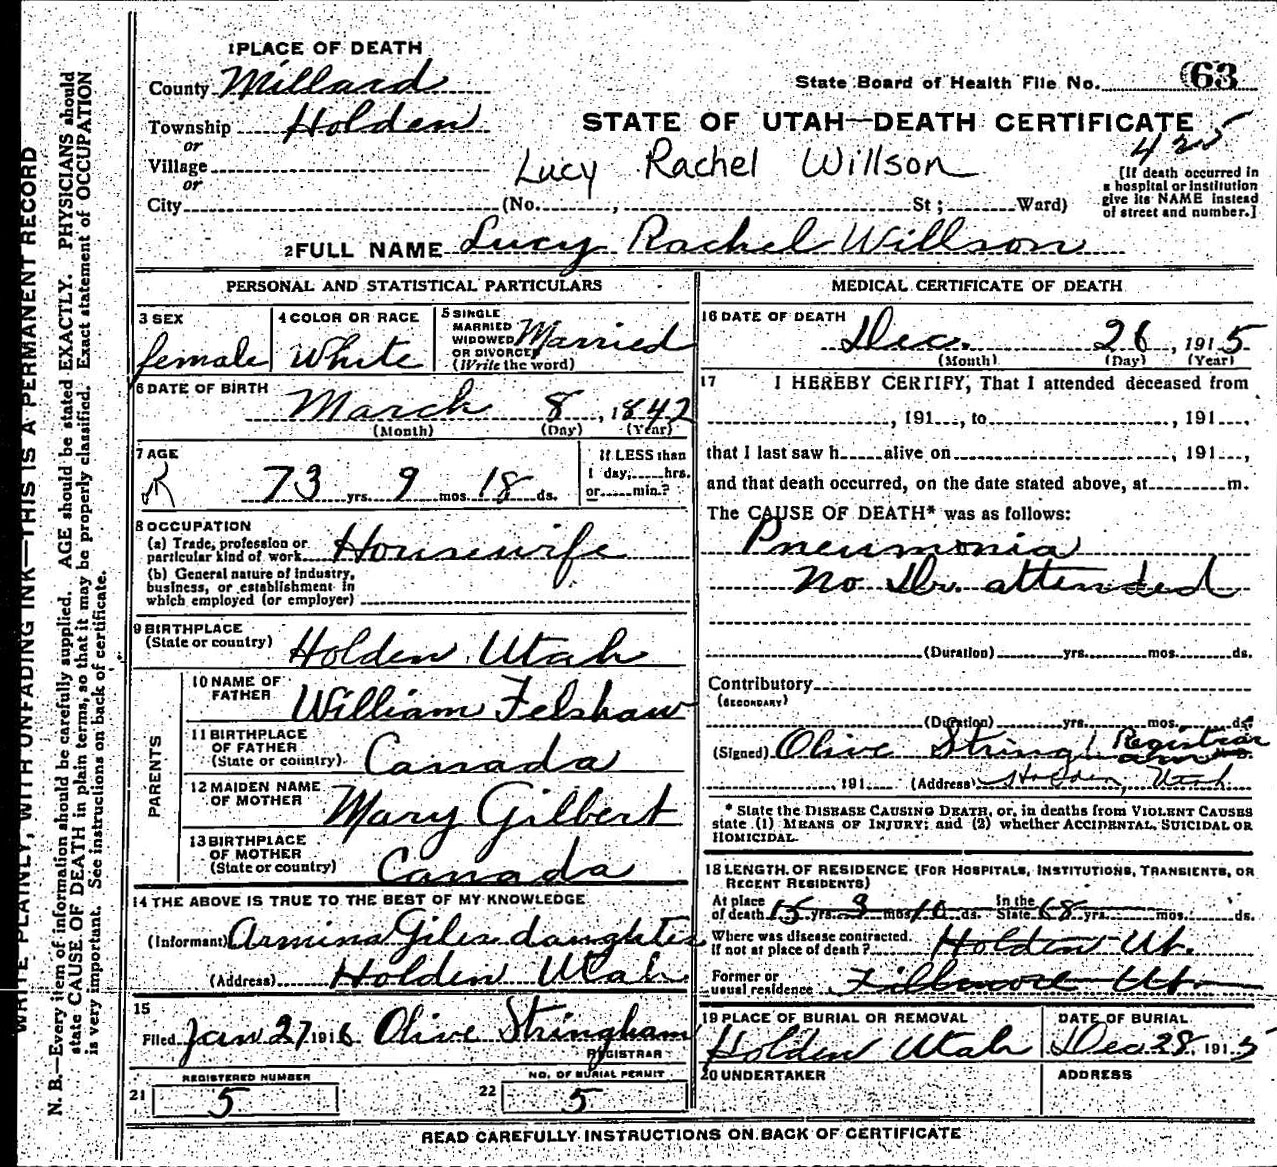 1 PLACE OF DEATH
County Millard
State Board of Health File No. 63
Township Holden
or
Village
or
City
STATE OF UTAH—DEATH CERTIFICATE
425
Lucy Rachel Willson
(No. , St ; Ward)
[If death occurred in
a hospital or institution
give its NAME instead
of street and number.]
2 FULL NAME Lucy Rachel Willson
PERSONAL AND STATISTICAL PARTICULARS
3 SEX
female
4 COLOR OR RACE
White
5 SINGLE
MARRIED
WIDOWED
OR DIVORCED
(Write the word)
Married
6 DATE OF BIRTH
March 8, 1842
(Month) (Day) (Year)
7 AGE
73 yrs. 9 mos. 18 ds.
If LESS than
1 day, hrs.
or min.?
8 OCCUPATION
(a) Trade, profession or
particular kind of work Housewife
(b) General nature of industry,
business, or establishment in
which employed (or employer)
9 BIRTHPLACE
(State or country) Holden, Utah
PARENTS
10 NAME OF
FATHER William Felshaw
11 BIRTHPLACE
OF FATHER
(State or country) Canada
12 MAIDEN NAME
OF MOTHER Mary Gilbert
13 BIRTHPLACE
OF MOTHER
(State or country) Canada
14 THE ABOVE IS TRUE TO THE BEST OF MY KNOWLEDGE
(Informant) Armina Giles daughter
(Address) Holden Utah
15
Filed Jan 27 1916 Olive Stringham
REGISTRAR
REGISTERED NUMBER
21 5
NO. OF BURIAL PERMIT
22 5
MEDICAL CERTIFICATE OF DEATH
16 DATE OF DEATH
Dec. 26, 1915
(Month) (Day) (Year)
17 I HEREBY CERTIFY, That I attended deceased from
, 191 , to , 191 ,
that I last saw h alive on , 191 ,
and that death occurred, on the date stated above, at m.
The CAUSE OF DEATH* was as follows:
Pneumonia
No Dr. attended
(Duration) yrs. mos. ds.
Contributory
(SECONDARY)
(Duration) yrs. mos. ds.
(Signed) Olive Stringham Registrar
, 191 (Address) Holden, Utah
* State the DISEASE CAUSING DEATH, or, in deaths from VIOLENT CAUSES
state (1) MEANS OF INJURY; and (2) whether ACCIDENTAL, SUICIDAL OR
HOMICIDAL.
18 LENGTH OF RESIDENCE (FOR HOSPITALS, INSTITUTIONS, TRANSIENTS, OR
RECENT RESIDENTS)
At place
of death 15 yrs. 9 mos. 10 ds. In the
State 68 yrs. mos. ds.
Where was disease contracted,
If not at place of death? Holden Ut.
Former or
usual residence Fillmore Ut
19 PLACE OF BURIAL OR REMOVAL
Holden Utah
DATE OF BURIAL
Dec 28, 1915
20 UNDERTAKER
ADDRESS
READ CAREFULLY INSTRUCTIONS ON BACK OF CERTIFICATE
WRITE PLAINLY, WITH UNFADING INK—THIS IS A PERMANENT RECORD
N. B.—Every item of information should be carefully supplied. AGE should be stated EXACTLY. PHYSICIANS should
state CAUSE OF DEATH in plain terms, so that it may be properly classified. Exact statement of OCCUPATION
is very important. See instructions on back of certificate.